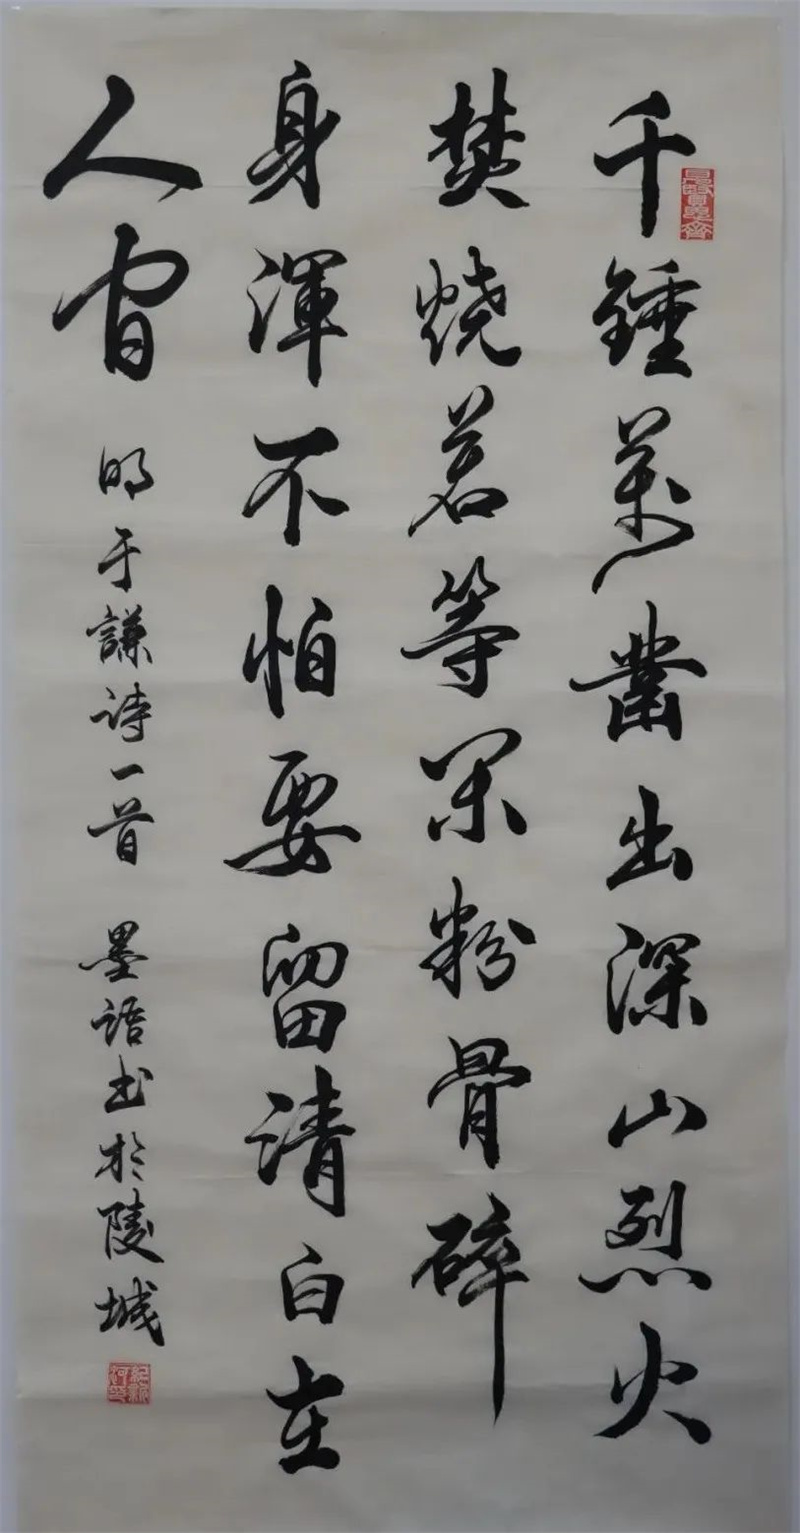 千錘萬鑿出深山烈火
焚燒若等閑粉骨碎
身渾不怕要留清白在
人間
明于謙詩一首 墨語書於陵城